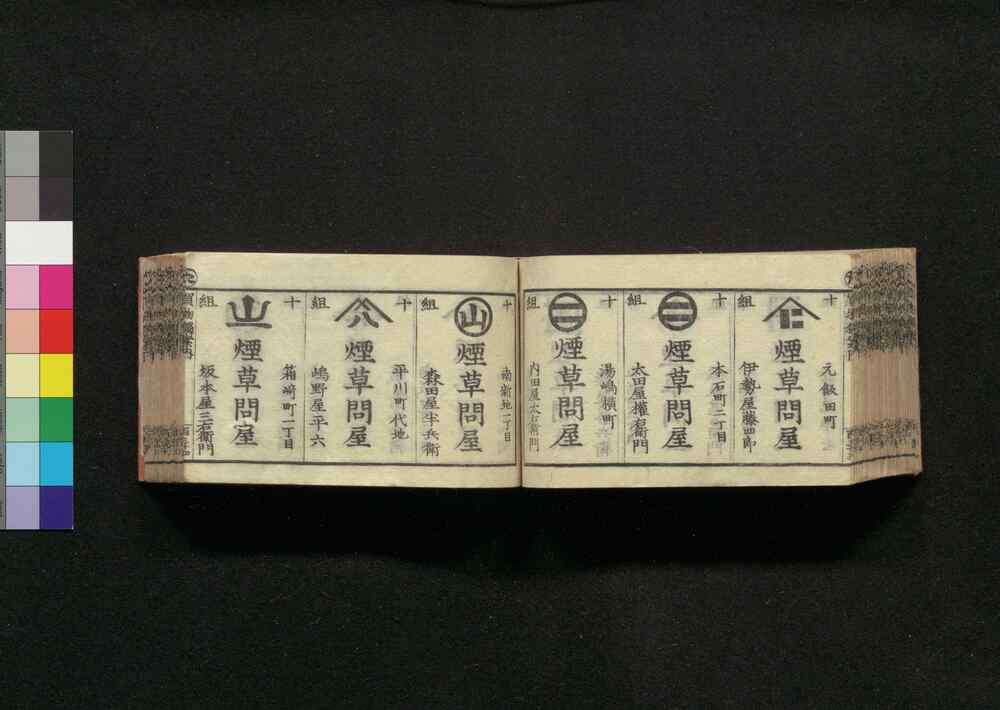 十組
元飯田町
煙草問屋
伊勢屋藤四郎
十組
本石町二丁目
煙草問屋
太田屋權右衛門
十組
湯嶋横町
煙草問屋
内田屋太右衛門
十組
南新地一丁目
山
煙草問屋
森田屋半兵衛
十組
平川町代地
煙草問屋
嶋野屋平六
十組
箱崎町一丁目
山
煙草問屋
坂本屋三右衛門